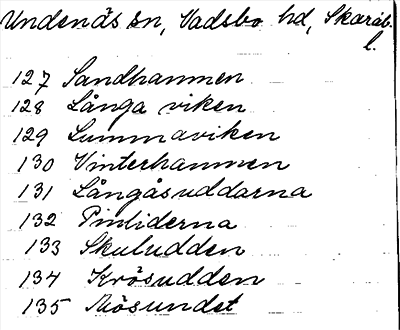 Undenäs sn, Vadsbo hd, Skarab.
l.
127 Sandhammen
128 Långa viken
129 Lummaviken
130 Vinterhammen
131 Långåsuddarna
132 Pinliderna
133 Skuludden
134 Krösudden
135 Mösundet